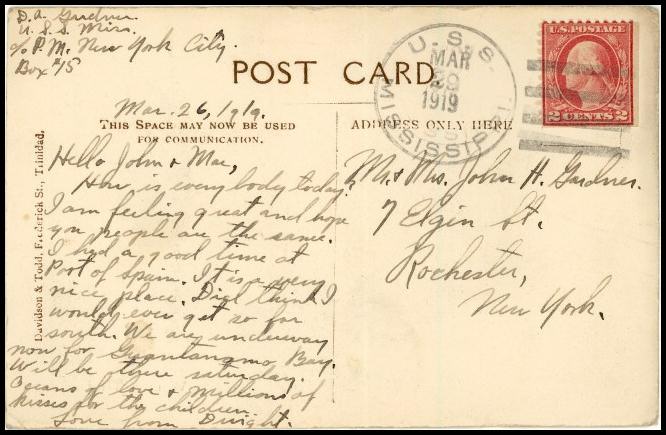 D. A. Gardner
U. S. S. Miss.
c/o P. M. New York City.
Box #15
U.S. POSTAGE
2 CENTS 2
U.S.S. MISSISSIPPI
MAR
29
1919
POST CARD.
Mar. 26, 1919.
THIS SPACE MAY NOW BE USED
FOR COMMUNICATION.
ADDRESS ONLY HERE
Davidson & Todd, Frederick St., Trinidad.
Hello John & Mae,
How is everybody today?
I am feeling great and hope
you people are the same.
I had a good time at
Port of Spain. It is a very
nice place. Didn't think I
would ever get so far
south. We are underway
now for Guantanamo Bay.
Will be there saturday.
Oceans of love & millions of
kisses for the children.
Love from Dwight.
Mr. & Mrs. John H. Gardner.
7 Elgin St.
Rochester,
New York.